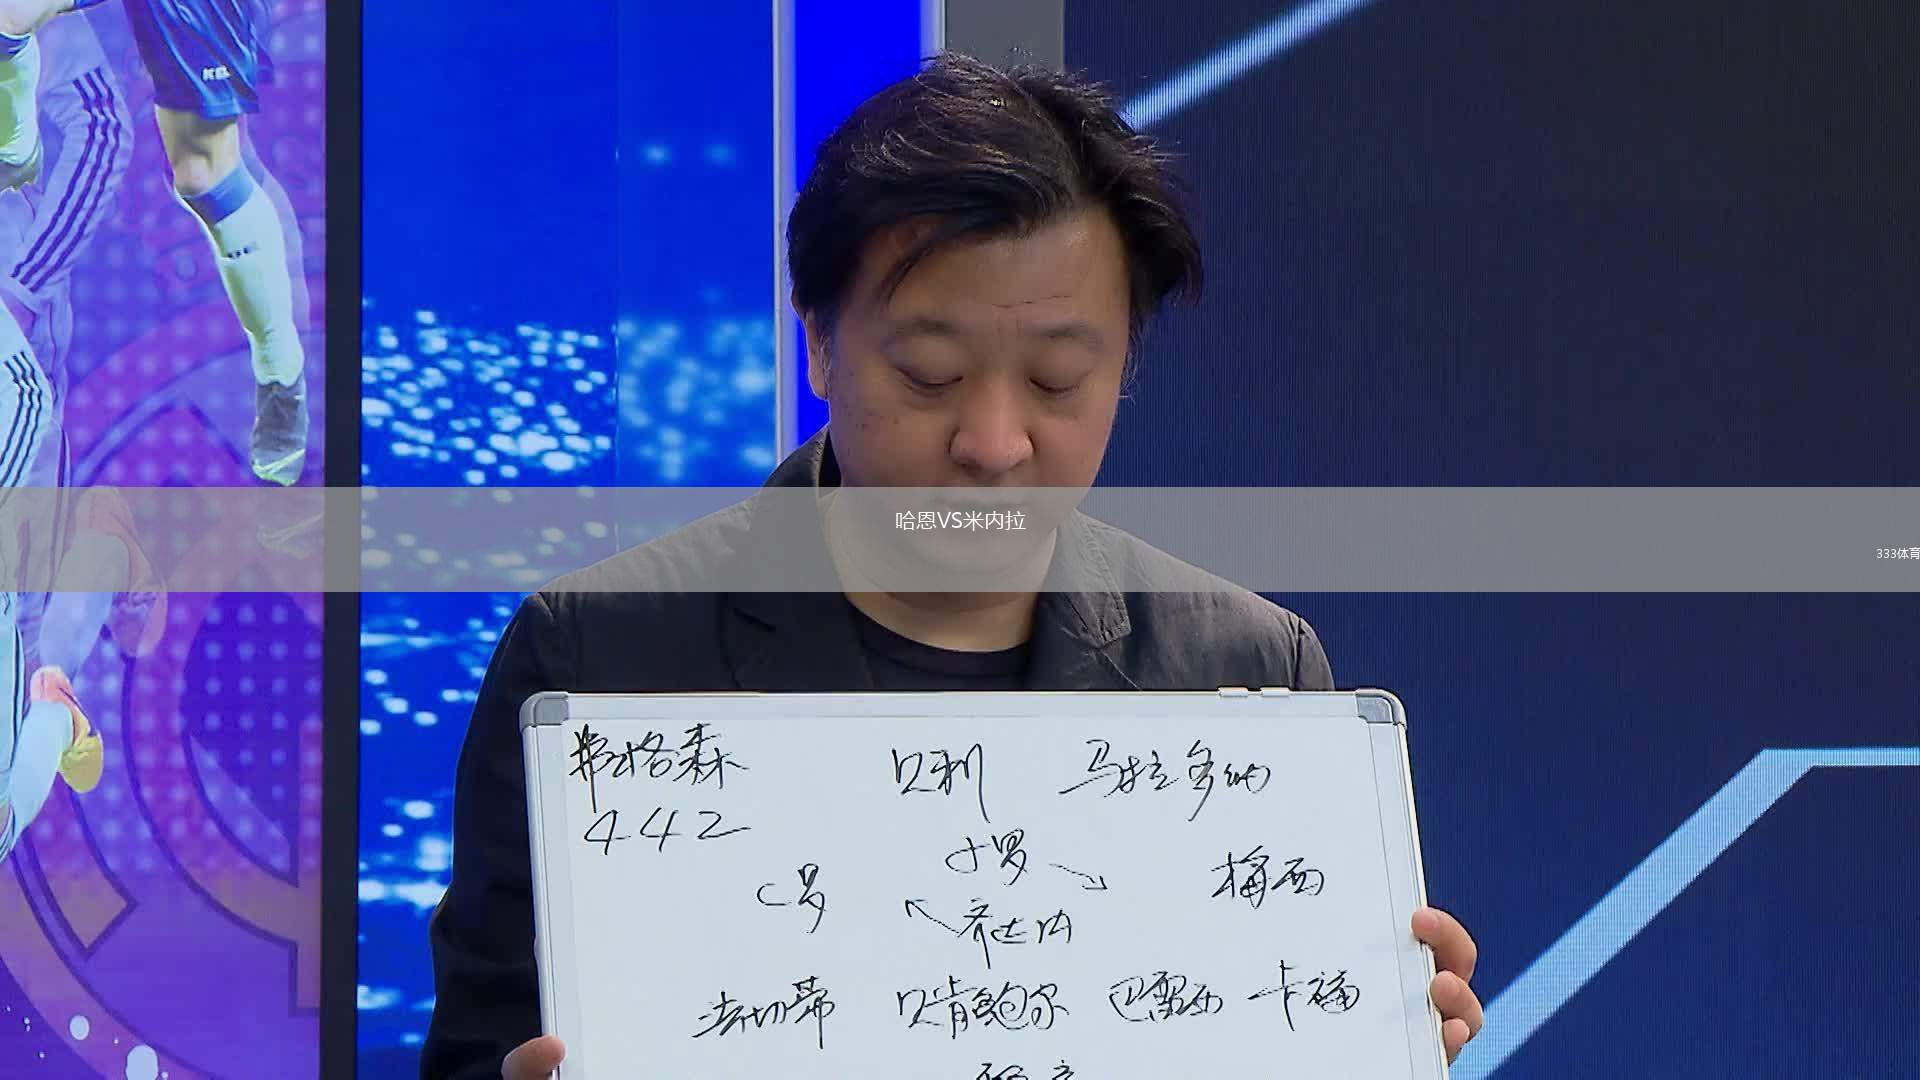 哈恩VS米内拉
333体育
弗格森 贝利 马拉多纳
442
小罗
C罗 梅西
齐达内
法切蒂 贝肯鲍尔 巴雷西 卡福